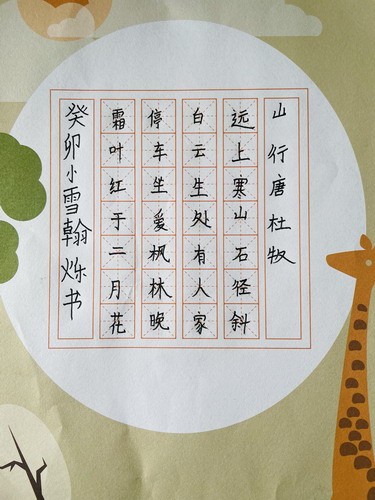 山行唐杜牧
远上寒山石径斜
白云生处有人家
停车坐爱枫林晚
霜叶红于二月花
癸卯小雪翰烁书